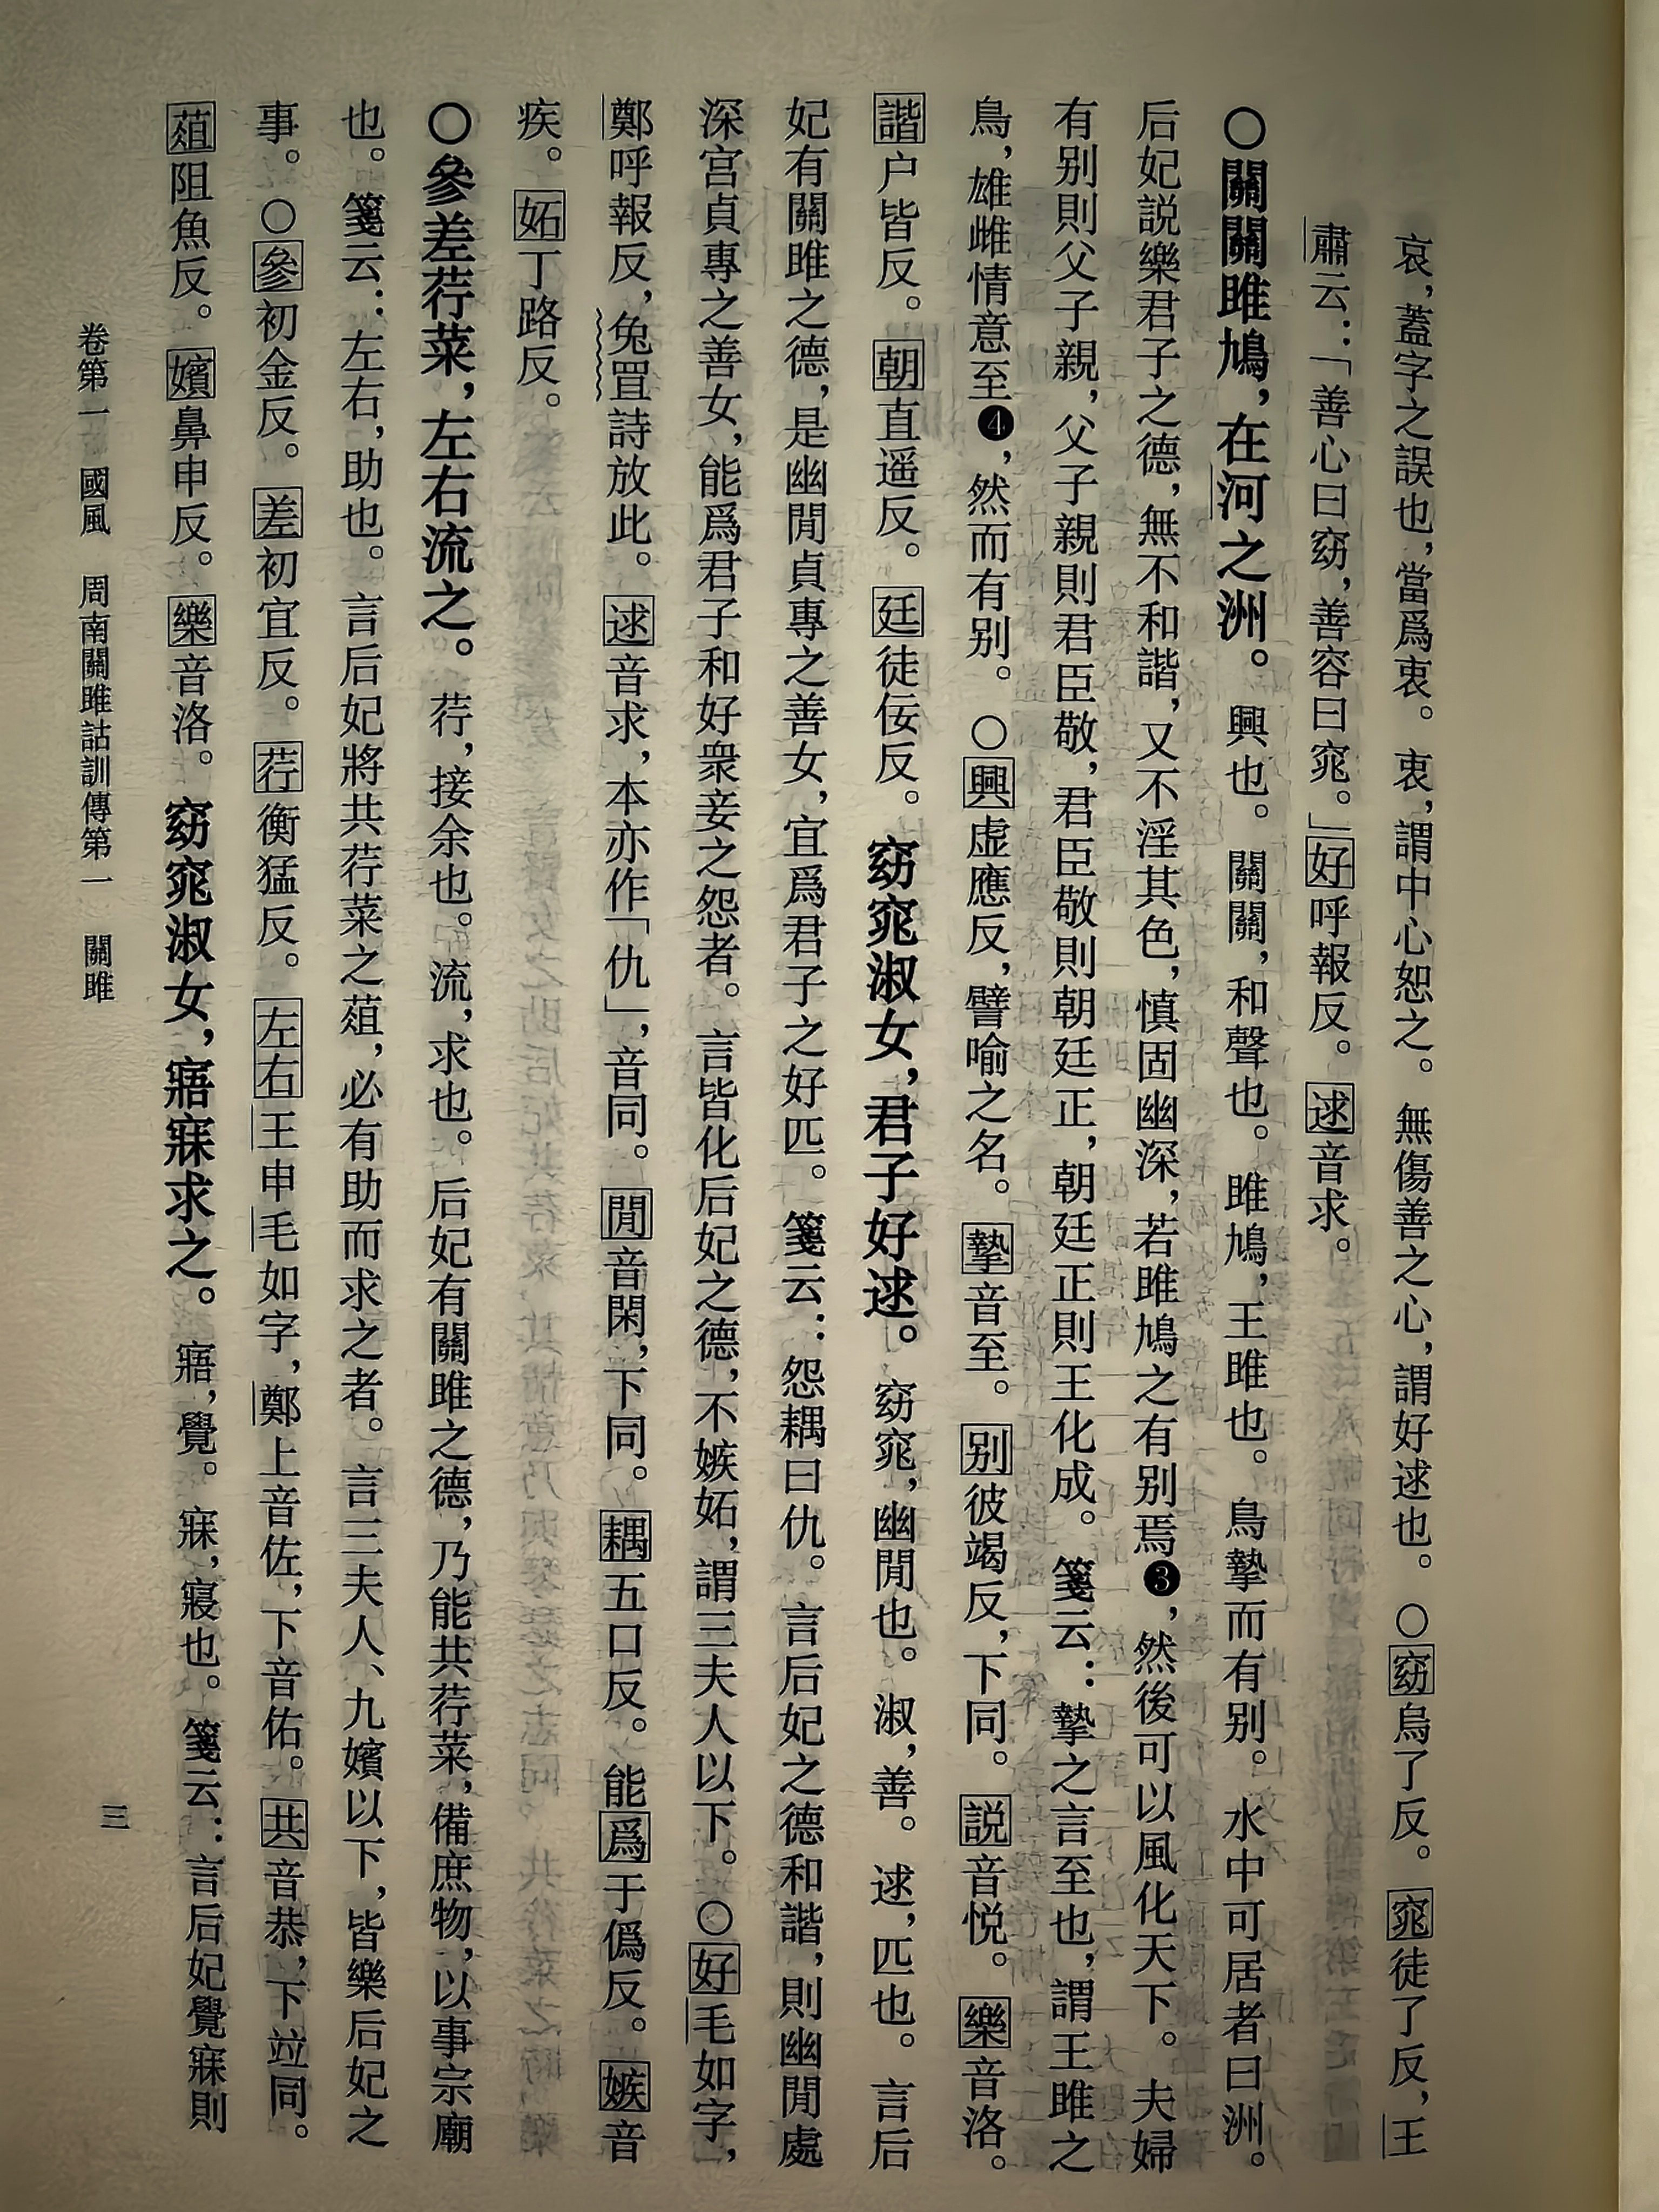 哀，蓋字之誤也，當爲衷。衷，謂中心恕之。無傷善之心，謂好逑也。〇窈烏了反。窕徒了反，王
肅云：「善心曰窈，善容曰窕。」好呼報反。逑音求。
〇關關雎鳩，在河之洲。興也。關關，和聲也。雎鳩，王雎也。鳥摯而有别。水中可居者曰洲。
后妃説樂君子之德，無不和諧，又不淫其色，慎固幽深，若雎鳩之有别焉❸，然後可以風化天下。夫婦
有别則父子親，父子親則君臣敬，君臣敬則朝廷正，朝廷正則王化成。箋云：摯之言至也，謂王雎之
鳥，雄雌情意至❹，然而有别。〇興虚應反，譬喻之名。摯音至。别彼竭反，下同。説音悦。樂音洛。
諧户皆反。朝直遥反。廷徒佞反。窈窕淑女，君子好逑。窈窕，幽閒也。淑，善。逑，匹也。言后
妃有關雎之德，是幽閒貞專之善女，宜爲君子之好匹。箋云：怨耦曰仇。言后妃之德和諧，則幽閒處
深宫貞專之善女，能爲君子和好衆妾之怨者。言皆化后妃之德，不嫉妬，謂三夫人以下。〇好毛如字，
鄭呼報反，兔罝詩放此。逑音求，本亦作「仇」，音同。閒音閑，下同。耦五口反。能爲于僞反。嫉音
疾。妬丁路反。
〇參差荇菜，左右流之。荇，接余也。流，求也。后妃有關雎之德，乃能共荇菜，備庶物，以事宗廟
也。箋云：左右，助也。言后妃將共荇菜之葅，必有助而求之者。言三夫人、九嬪以下，皆樂后妃之
事。〇參初金反。差初宜反。荇衡猛反。左右王申毛如字，鄭上音佐，下音佑。共音恭，下竝同。
葅阻魚反。嬪鼻申反。樂音洛。窈窕淑女，寤寐求之。寤，覺。寐，寢也。箋云：言后妃覺寐則
卷第一　國風　周南關雎詁訓傳第一　關雎
三